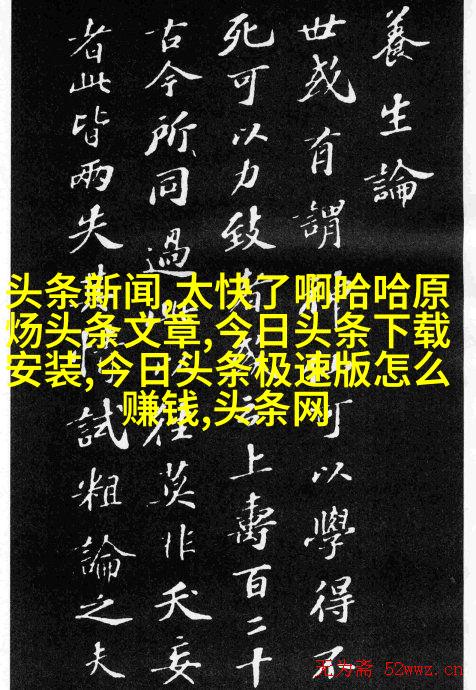 養生論
世或有謂神可以學得不
死可以力致者云上壽百二十
古今所同過往莫非夭妄
者此皆兩失試粗論之夫
头条新闻,太快了啊哈哈原
炀头条文章,今日头条下载
安装,今日头条极速版怎么
赚钱,头条网
无为斋 52wwz.cn